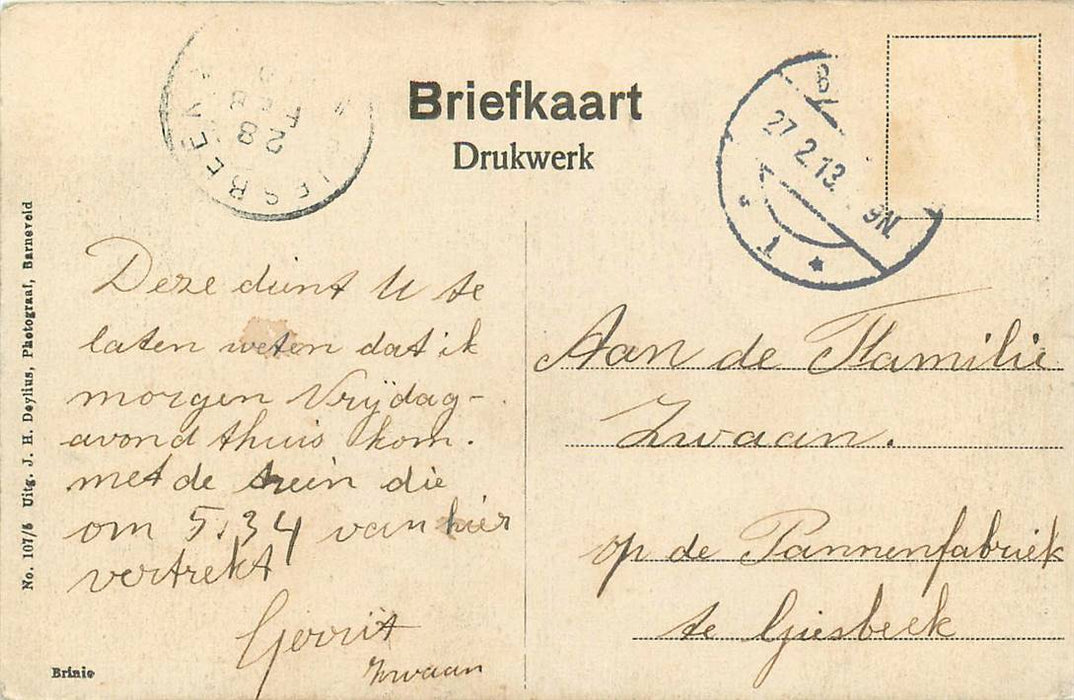 Briefkaart
Drukwerk
28
FEB
27.2.13. 9N.
1
No. 107/5 Uitg. J. H. Deylius, Photograaf, Barneveld
Deze dient U te
laten weten dat ik
morgen Vrijdag-
avond thuis kom.
met de trein die
om 5.34 van hier
vertrekt
Gerrit
Zwaan
Aan de Familie
Zwaan.
op de Pannenfabriek
te Giesbeek
Brinio